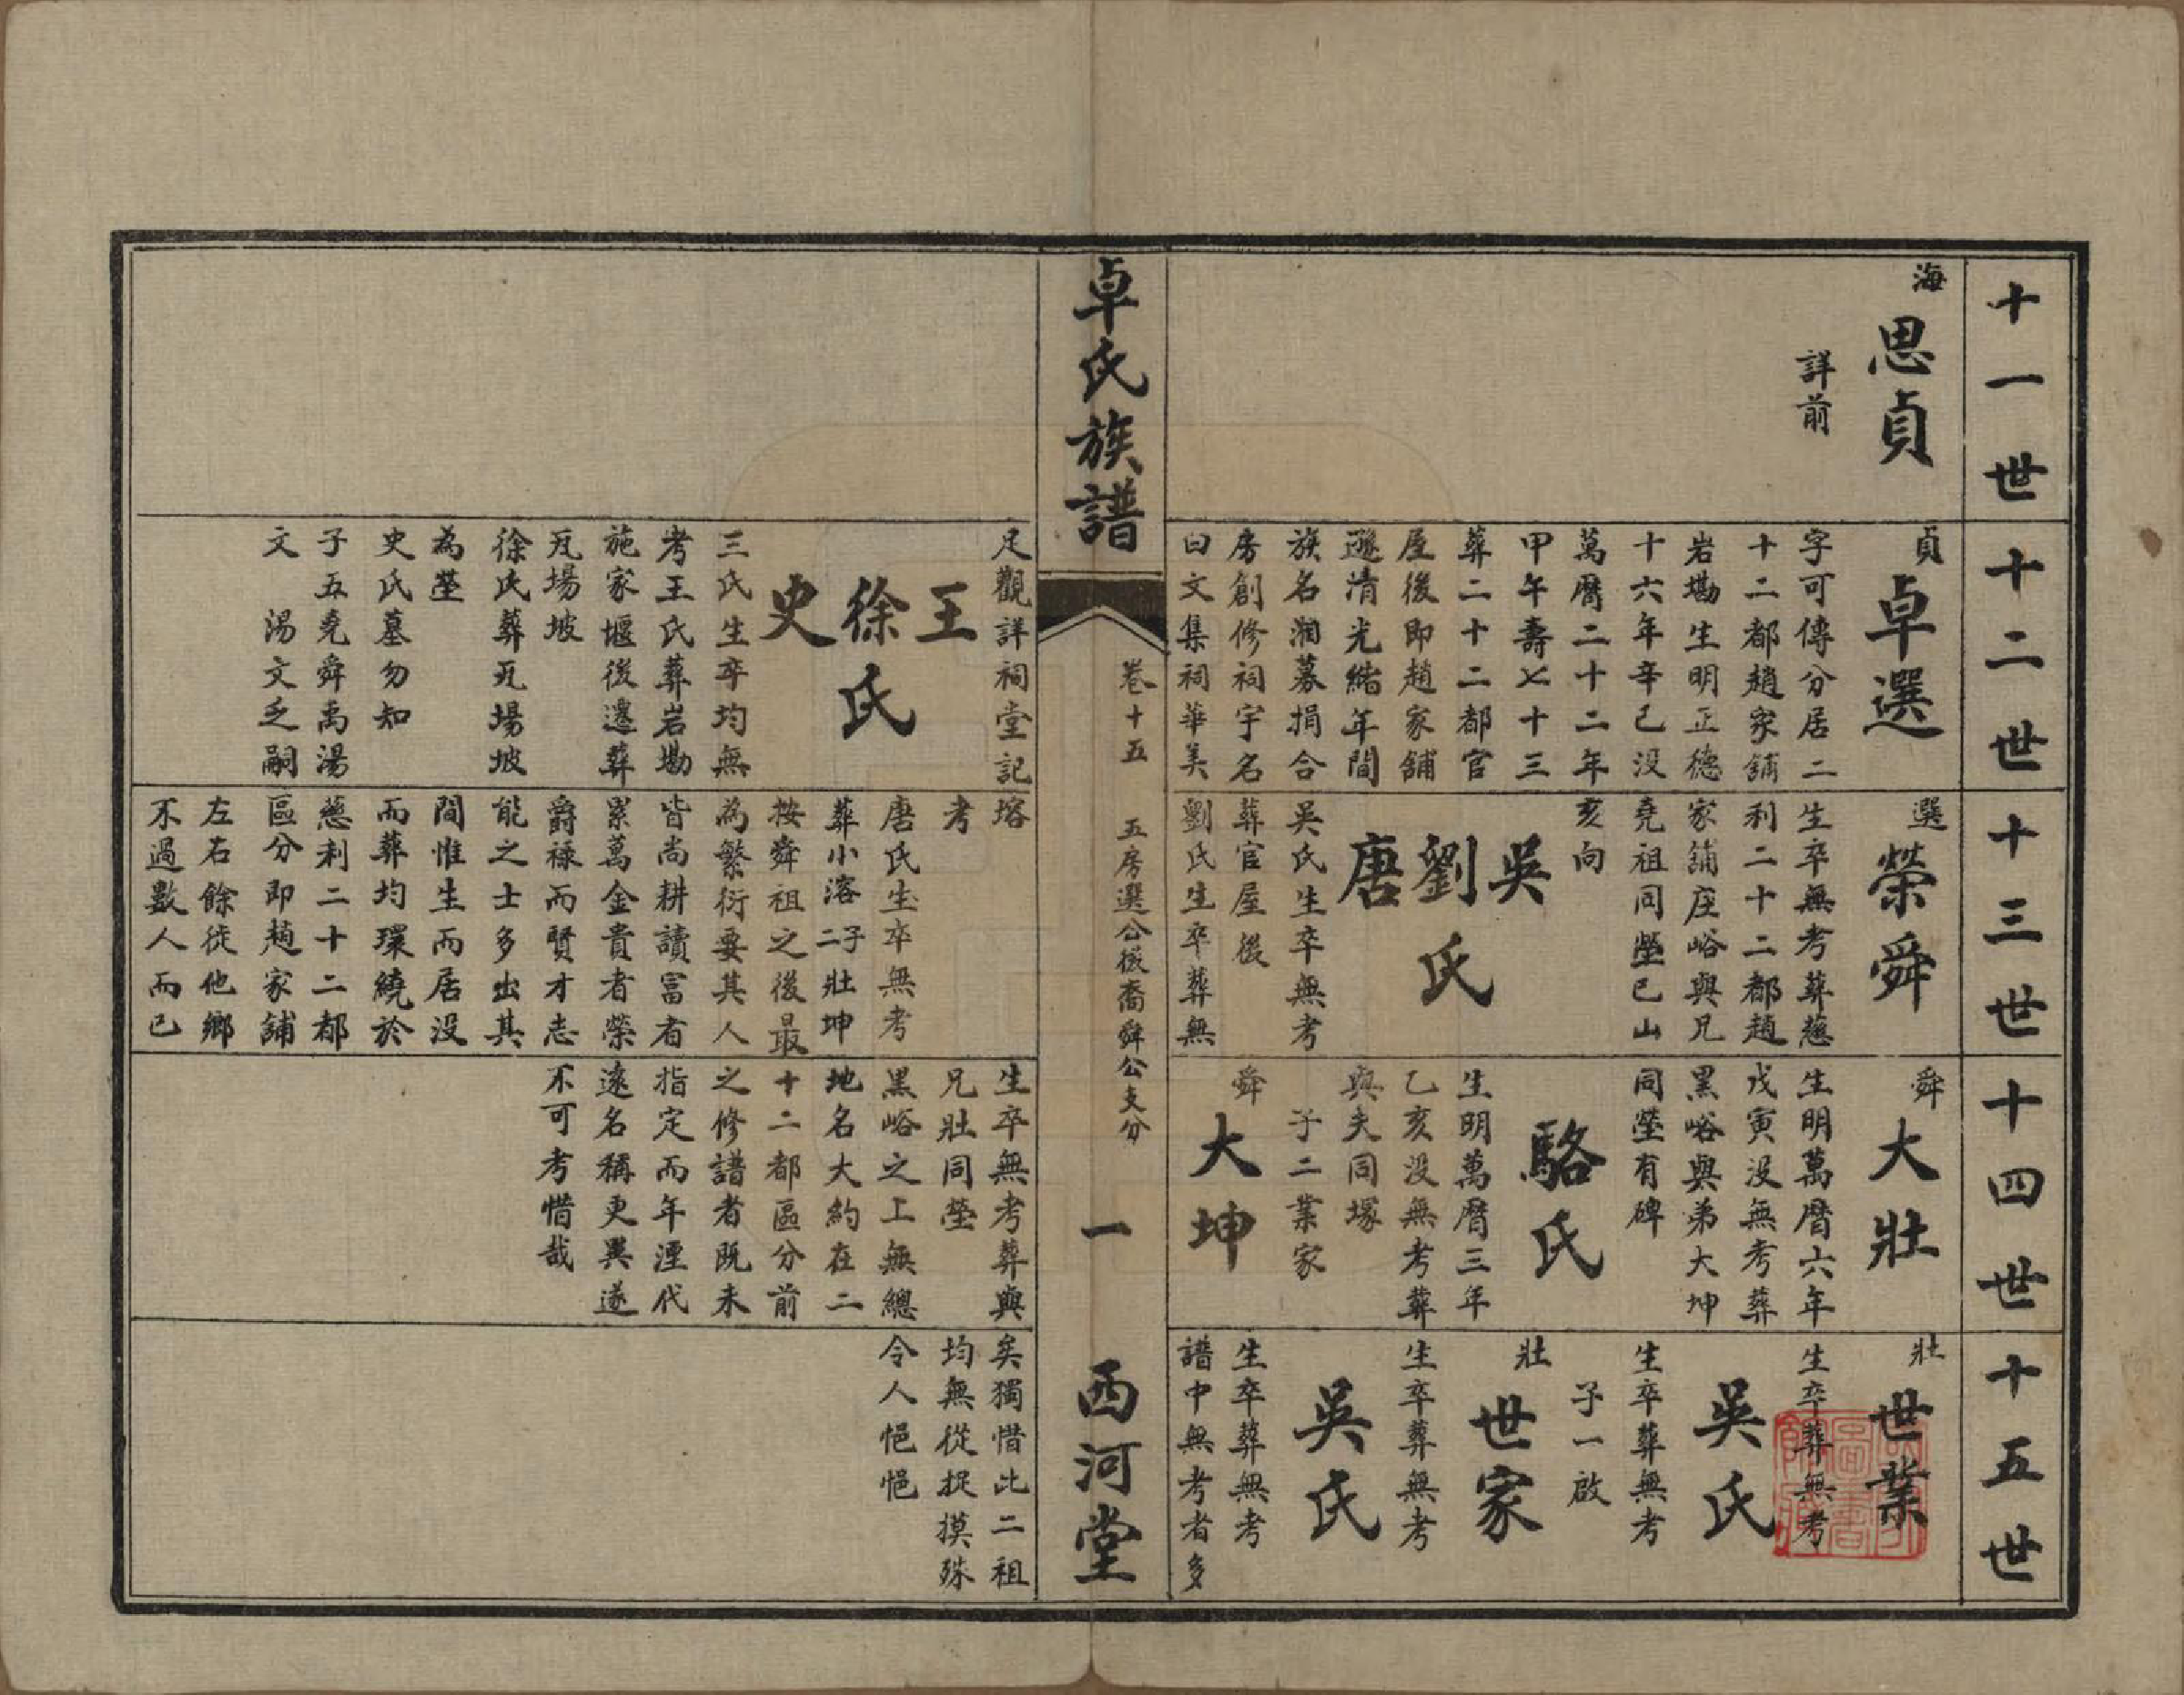 十一世
海
思貞
詳前
十二世
貞
卓選
字可傳分居二
十二都趙家舖
岩塝生明正德
十六年辛巳没
萬曆二十二年
甲午壽七十三
葬二十二都官
屋後即趙家舖
遜清光緒年間
族名湘募捐合
房創修祠宇名
曰文集祠華美
足觀詳祠堂記
王
徐
史
氏
三氏生卒均無
考王氏葬岩塝
施家堰後遷葬
瓦場坡
徐氏葬瓦場坡
為塋
史氏墓勿知
子五堯舜禹湯
文 湯文乏嗣
十三世
選
榮舜
生卒無考葬慈
利二十二都趙
家舖庄峪與兄
堯祖同塋巳山
亥向
吳
劉
唐
氏
吳氏生卒無考
葬官屋後
劉氏生卒葬無
塔
考
唐氏生卒無考
葬小溶 子二壯坤
按舜祖之後最
為繁衍要其人
皆尚耕讀富者
累萬金貴者榮
爵祿而賢才志
能之士多出其
間惟生而居没
而葬均環繞於
慈利二十二都
區分即趙家舖
左右餘徒他鄉
不過數人而已
十四世
舜
大壯
生明萬曆六年
戊寅没無考葬
黑峪與弟大坤
同塋有碑
駱氏
生明萬曆三年
乙亥没無考葬
與夫同塚
子二業家
舜
大坤
生卒無考葬與
兄壯同塋
黑峪之工無總
地名大約在二
十二都區分前
之修譜者既未
指定而年湮代
遠名稱更異遂
不可考惜哉
十五世
壯
世業
生卒葬無考
吳氏
生卒葬無考
子一啟
壯
世家
生卒葬無考
吳氏
生卒葬無考
譜中無考者多
矣獨惜此二祖
均無從捉摸殊
令人悒悒
卓氏族譜
卷十五
五房選公後裔舜公支分
一
西河堂